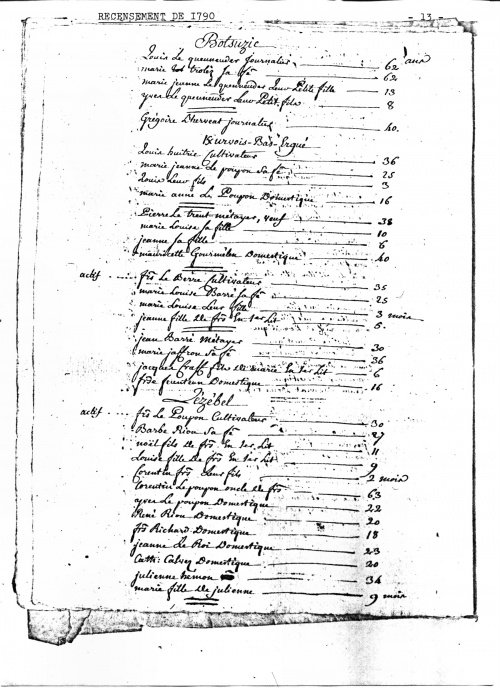 RECENSEMENT DE 1790 - 13 -
Botsuzic
ans
Louis Le queneudec Journalier 62
marie trolez sa fe 62
marie jeanne Le queneudec Leur Petite fille 13
yves Le queneudec Leur Petit fils 8
Grégoire Lhervent journalier 40
Kurvois-Bas-Ergué
Louis huitric Cultivateur 36
marie jeanne Le poupon Sa fe 25
Louis Leur fils 3
marie anne Le Poupon Domestique 16
Pierre Le treut métayer, veuf 38
marie Louise sa fille 10
jeanne sa fille 6
mauricette Gourmelen Domestique 40
actif .... frs Le Berre Cultivateur 35
marie Louise Barré sa fe 25
marie Louise Leur fille 3 mois
jeanne fille De frs En 1er Lit 5
jean Barré Métayer 30
marie jaffrou sa fe 36
jacques Craff fils de marie En 1er Lit 6
feunteun Domestique 16
Lézébel
actif ... frs Le Poupon Cultivateur 30
Barbe Riou Sa fe 27
noël fils De frs En 1er Lit 11
Louise fille De frs En 1er Lit 9
Corentin frs Leur fils 2 mois
Corentin Le poupon oncle de frs 63
yves Le poupon Domestique 22
René Riou Domestique 20
frs Richard Domestique 18
jeanne Le Roi Domestique 23
Cath: Domestique 20
julienne hemon 34
marie fille De julienne 9 mois